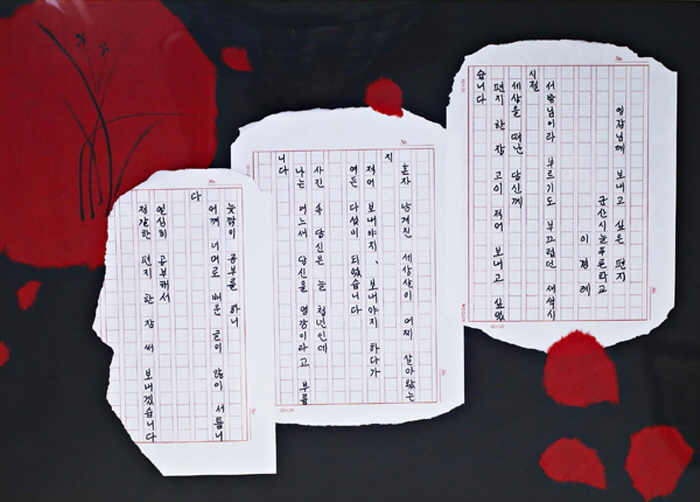 영감님께 보내고 싶은 편지
군산시늘푸른학교
이경례
서방님이라 부르기도 부끄럽던 새색시
시절
세상을 떠난 당신께
편지 한 장 고이 적어 보내고 싶었
습니다
혼자 남겨진 세상살이 어찌 살아왔는
지
적어 보내야지, 보내야지 하다가
여든 다섯이 되었습니다
사진 속 당신은 늘 청년인데
나는 어느새 당신을 영감이라고 부릅
니다
늦깎이 공부를 하니
어깨 너머로 배운 글이 많이 서툽니
다
열심히 공부해서
정갈한 편지 한 장 써 보내겠습니다